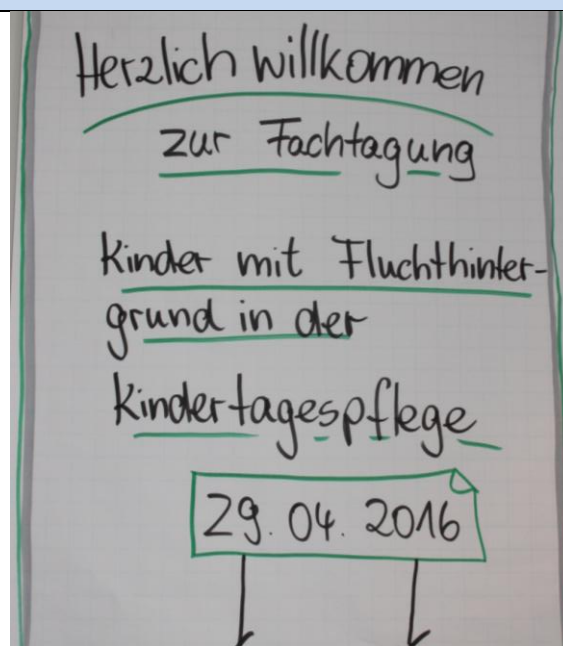 Herzlich willkommen
zur Fachtagung
Kinder mit Fluchthinter-
grund in der
Kindertagespflege
29.04.2016